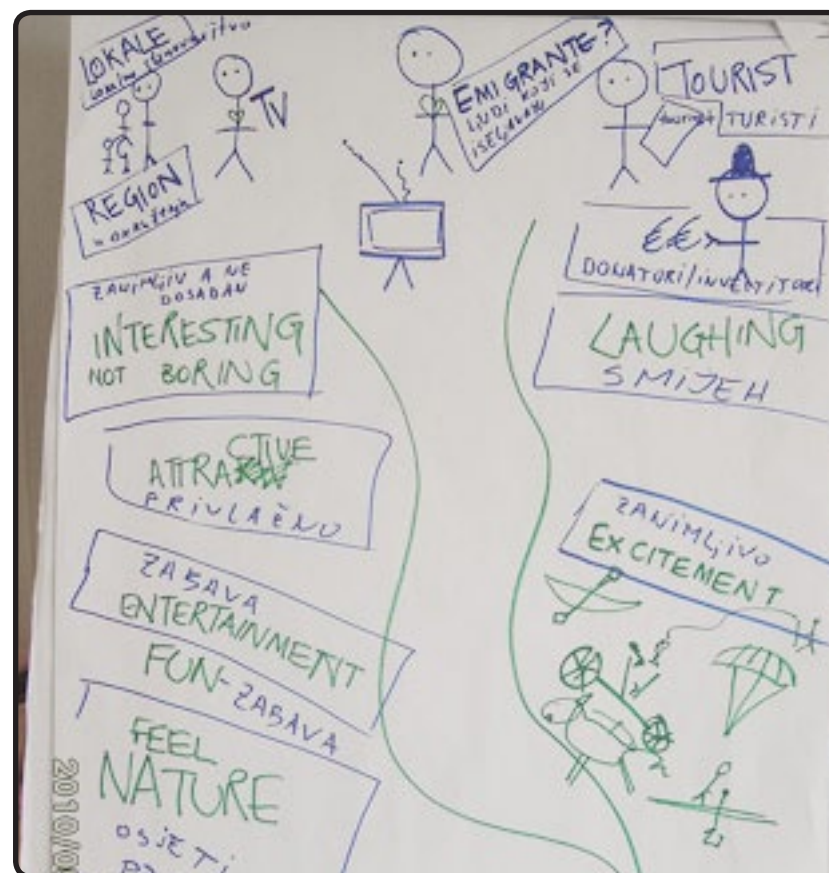 LOKALE
TV
REGION
EMIGRANTE?
LJUDI KOJI SE
ISELJAVAJU
TOURIST
tourist
TURISTI
€€
DONATORI/INVESTITORI
ZANIMLJIV A NE
DOSADAN
INTERESTING
NOT BORING
LAUGHING
SMIJEH
ATTRACTIVE
PRIVLAČNO
ZANIMLJIVO
EXCITEMENT
ZABAVA
ENTERTAINMENT
FUN-ZABAVA
FEEL
NATURE
OSJETI
2010/0